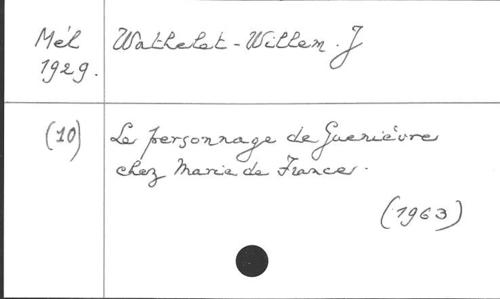 Mél Wathelet-Willem. J
1929.
(10) Le personnage de Guenièvre
chez Marie de France.
(1963)